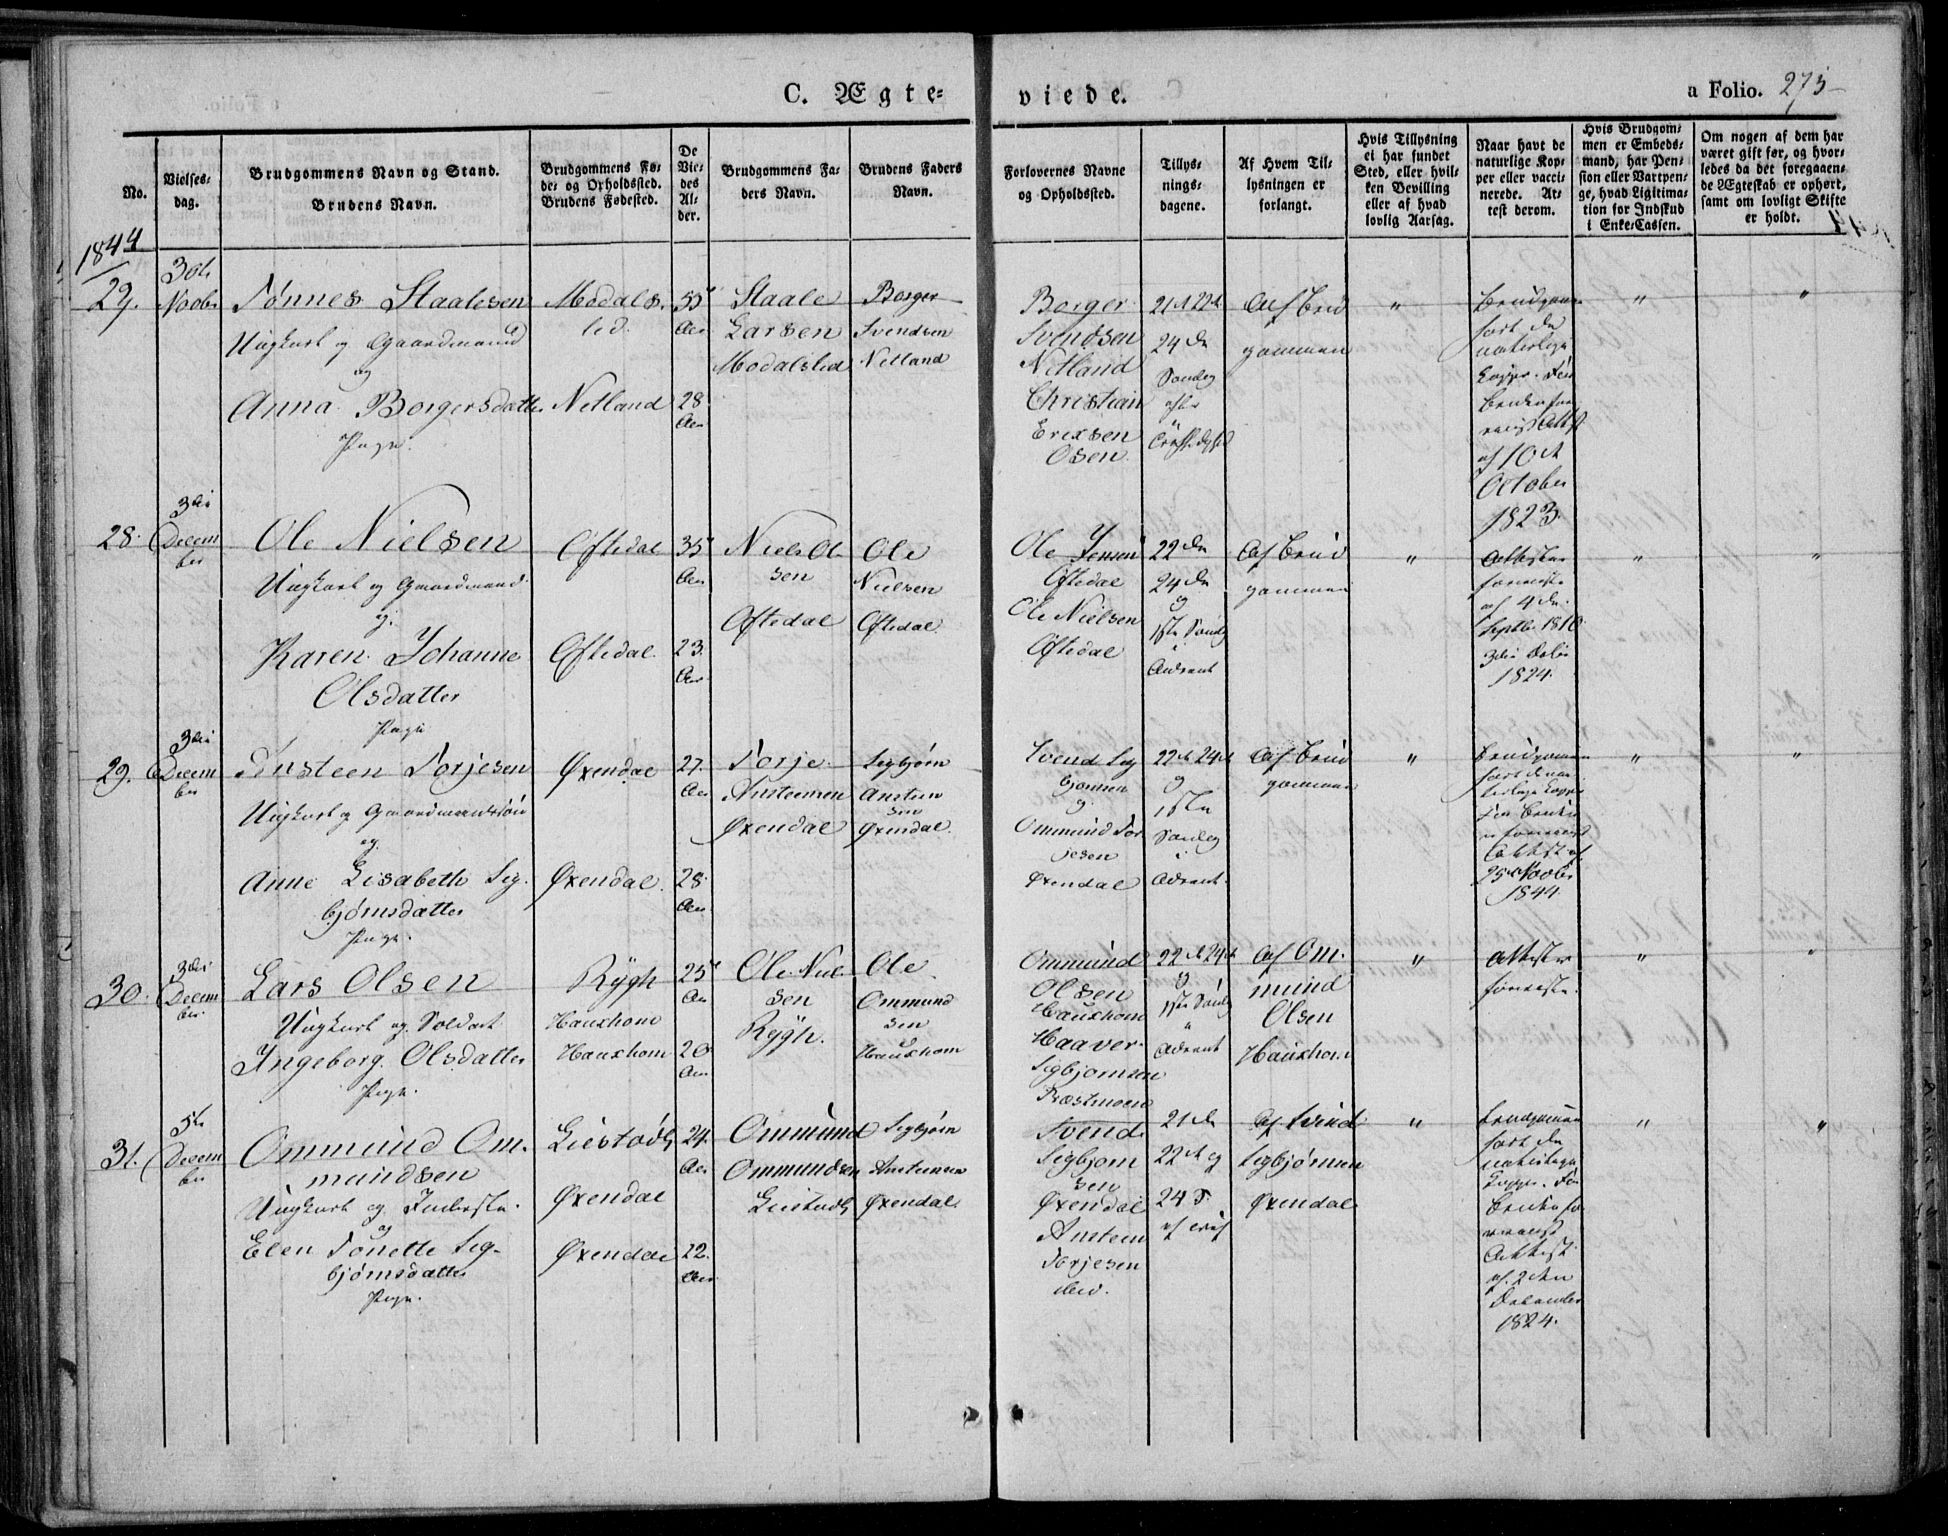 C. Ægte-
viede.
a Folio. 275
No.
Vielses-
dag.
Brudgommens Navn og Stand.
Brudens Navn.
Brudgommens Fø-
de- og Opholdssted.
Brudens Fødested.
De
Vie-
des
Al-
der.
Brudgommens Fa-
ders Navn.
Brudens Faders
Navn.
Forlovernes Navne
og Opholdssted.
Tillys-
nings-
dagene.
Af Hvem Til-
lysningen er
forlangt.
Hvis Tillysning
ei har fundet
Sted, eller hvil-
ken Bevilling
eller af hvad
lovlig Aarsag.
Naar havt de
naturlige Kop-
per eller vacci-
nerede. At-
test derom.
Hvis Brudgom-
men er Embeds-
mand, har Pen-
sion eller Vartpen-
ge, hvad Ligitima-
tion for Indskud
i Enke-Cassen.
Om nogen af dem har
været gift før, og hvor-
ledes da det foregaaen-
de Ægteskab er ophørt,
samt om lovligt Skifte
er holdt.
1844
29.
30te
Novbr
Tönnes Staalesen
Ungkarl og Gaardmand
og
Anna Borgersdatter
Pige.
Modals-
led.
Netland
55
Aar
28
Aar
Staale
Larsen
Modalsled
Borger
Svendsen
Netland
Borger
Svendsen
Netland
Christian
Erixsen
Osen
21de 22de
24de
Søndag
efter
Af Brud
gommen
"
Brudgommen
havt de
naturlige
Kopper.
af 10de
October
1823.
"
"
28.
3die
Decem
ber
Ole Nielsen
Ungkarl og Gaardmand
og
Karen Johanne
Olsdatter
Pige
Øftedal
Øftedal.
35
Aar
23.
Aar
Niels Ol
sen
Øftedal
Ole
Nielsen
Øftedal.
Ole Jensen
Øftedal
Ole Nielsen
Øftedal
22de
24de
og
1ste Søndag
i
Advent
Af Brud
gommen
"
Attester
foreviste
af 4de
Septbr 1816
3die
1824.
"
"
29.
3die
Decem
ber
Ansteen Torjesen
Ungkarl og Gaardmandssøn
og
Anne Lisabeth Sig-
bjørnsdatter
Pige.
Øxendal
Øxendal.
27.
Aar
28.
Aar
Torje
Ansteensen
Øxendal
Sigbjørn
Ansteen
sen
Øxendal.
Svend Sig
bjørnsen
og
Ommund Tor
jesen
Øxendal
22de 24de
og
1ste
Søndag
i
Advent.
Af Brud
gommen
"
Brudgommen
havt de na-
turlige Kopper
Attest af
25de Novbr
1844.
"
"
30.
3die
Decem
ber.
Lars Olsen
Ungkarl og Soldat
Ingeborg Olsdatter
Pige.
Rygh
Hauxhom
Hauxhom
25
Aar
20
Aar
Ole Niel
sen
Rygh.
Ole
Ommund
sen
Hauxhom
Ommund
Olsen
Hauxhom
Haaver
Sigbjørnsen
Præstmoen
22de 24de
og
1ste Søndag
i
Advent
Af Om-
mund
Olsen
Hauxhom
"
Attester
foreviste.
"
"
31.
5te
Decem
ber
Ommund Om-
mundsen
Ungkarl og Inderste.
og
Elen Tonette Sig-
bjørnsdatter
Pige.
Liestøl
Øxendal
Øxendal
24.
Aar
22.
Aar
Ommund
Ommundsen
Sigbjørn
Ansteensen
Øxendal.
Svend
Sigbjørn
sen
Øxendal
Ansteen
Torjesen
ibid.
21de
22de og
24 S.
Af Svend
Sigbjørnsen
Øxendal
"
Brudgommen
havt de
naturlige
Kopper.
Attest
af 2den
December
1824.
"
"